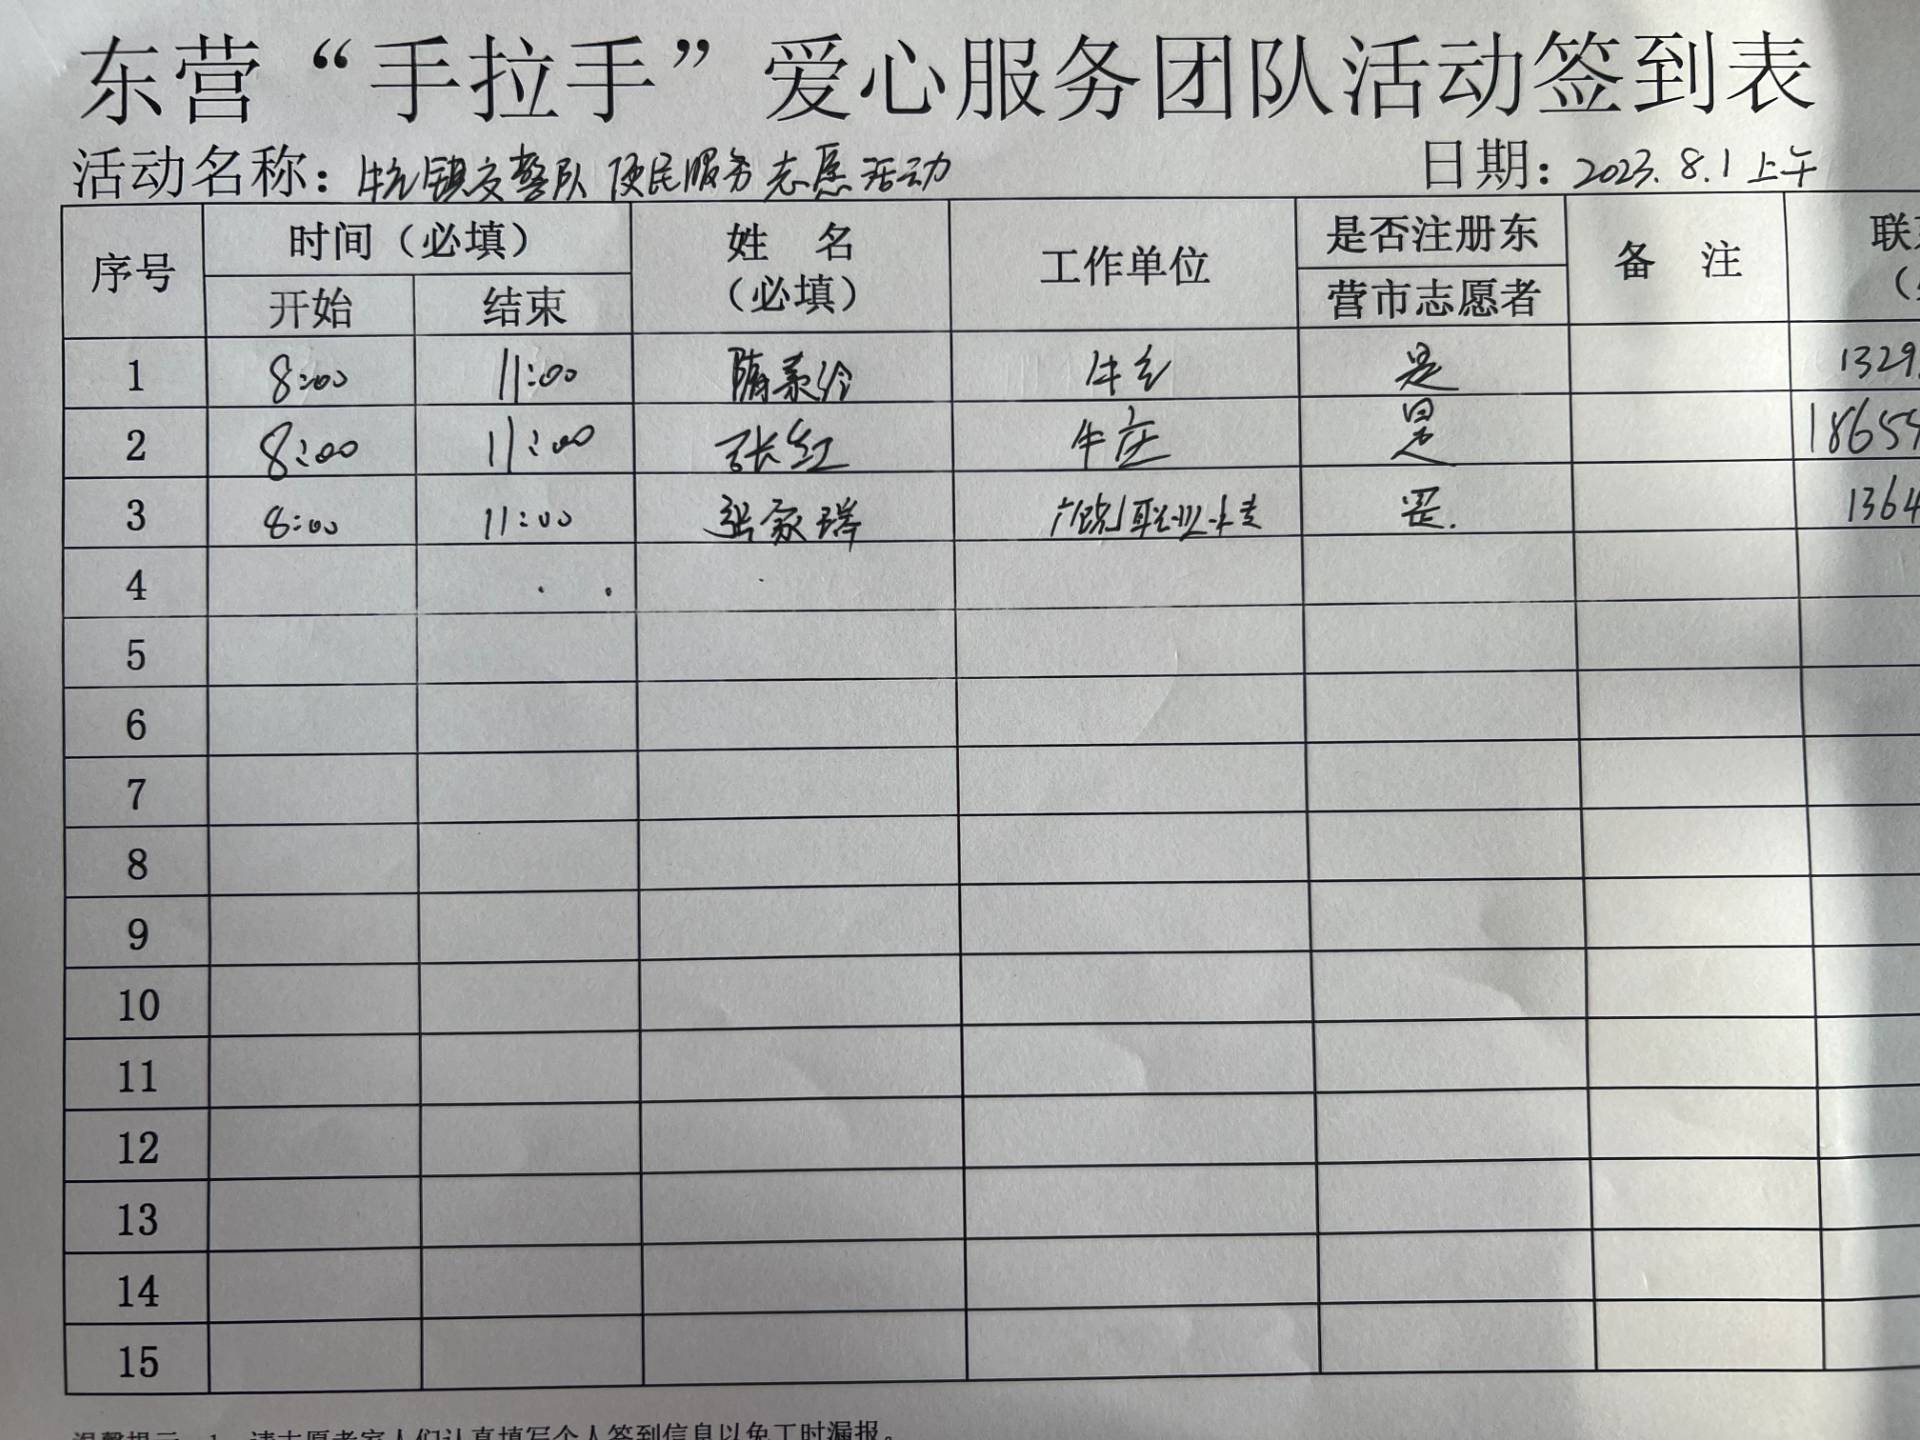 东营“手拉手”爱心服务团队活动签到表
活动名称：牛庄镇交警队便民服务志愿活动 日期：2023.8.1上午
序号 时间（必填） 姓 名（必填） 工作单位 是否注册东营市志愿者 备 注
开始 结束
1 8:00 11:00 隋 牛庄 是 1329
2 8:00 11:00 张红 牛庄 是 18654
3 8:00 11:00 张家瑞 职业 是. 1364
4
5
6
7
8
9
10
11
12
13
14
15
温馨提示 1、请志愿者家人们认真填写个人签到信息以免工时漏报。